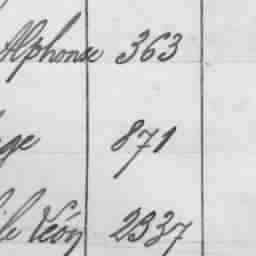 Alphonse 363
ge 871
ile Léon 2337